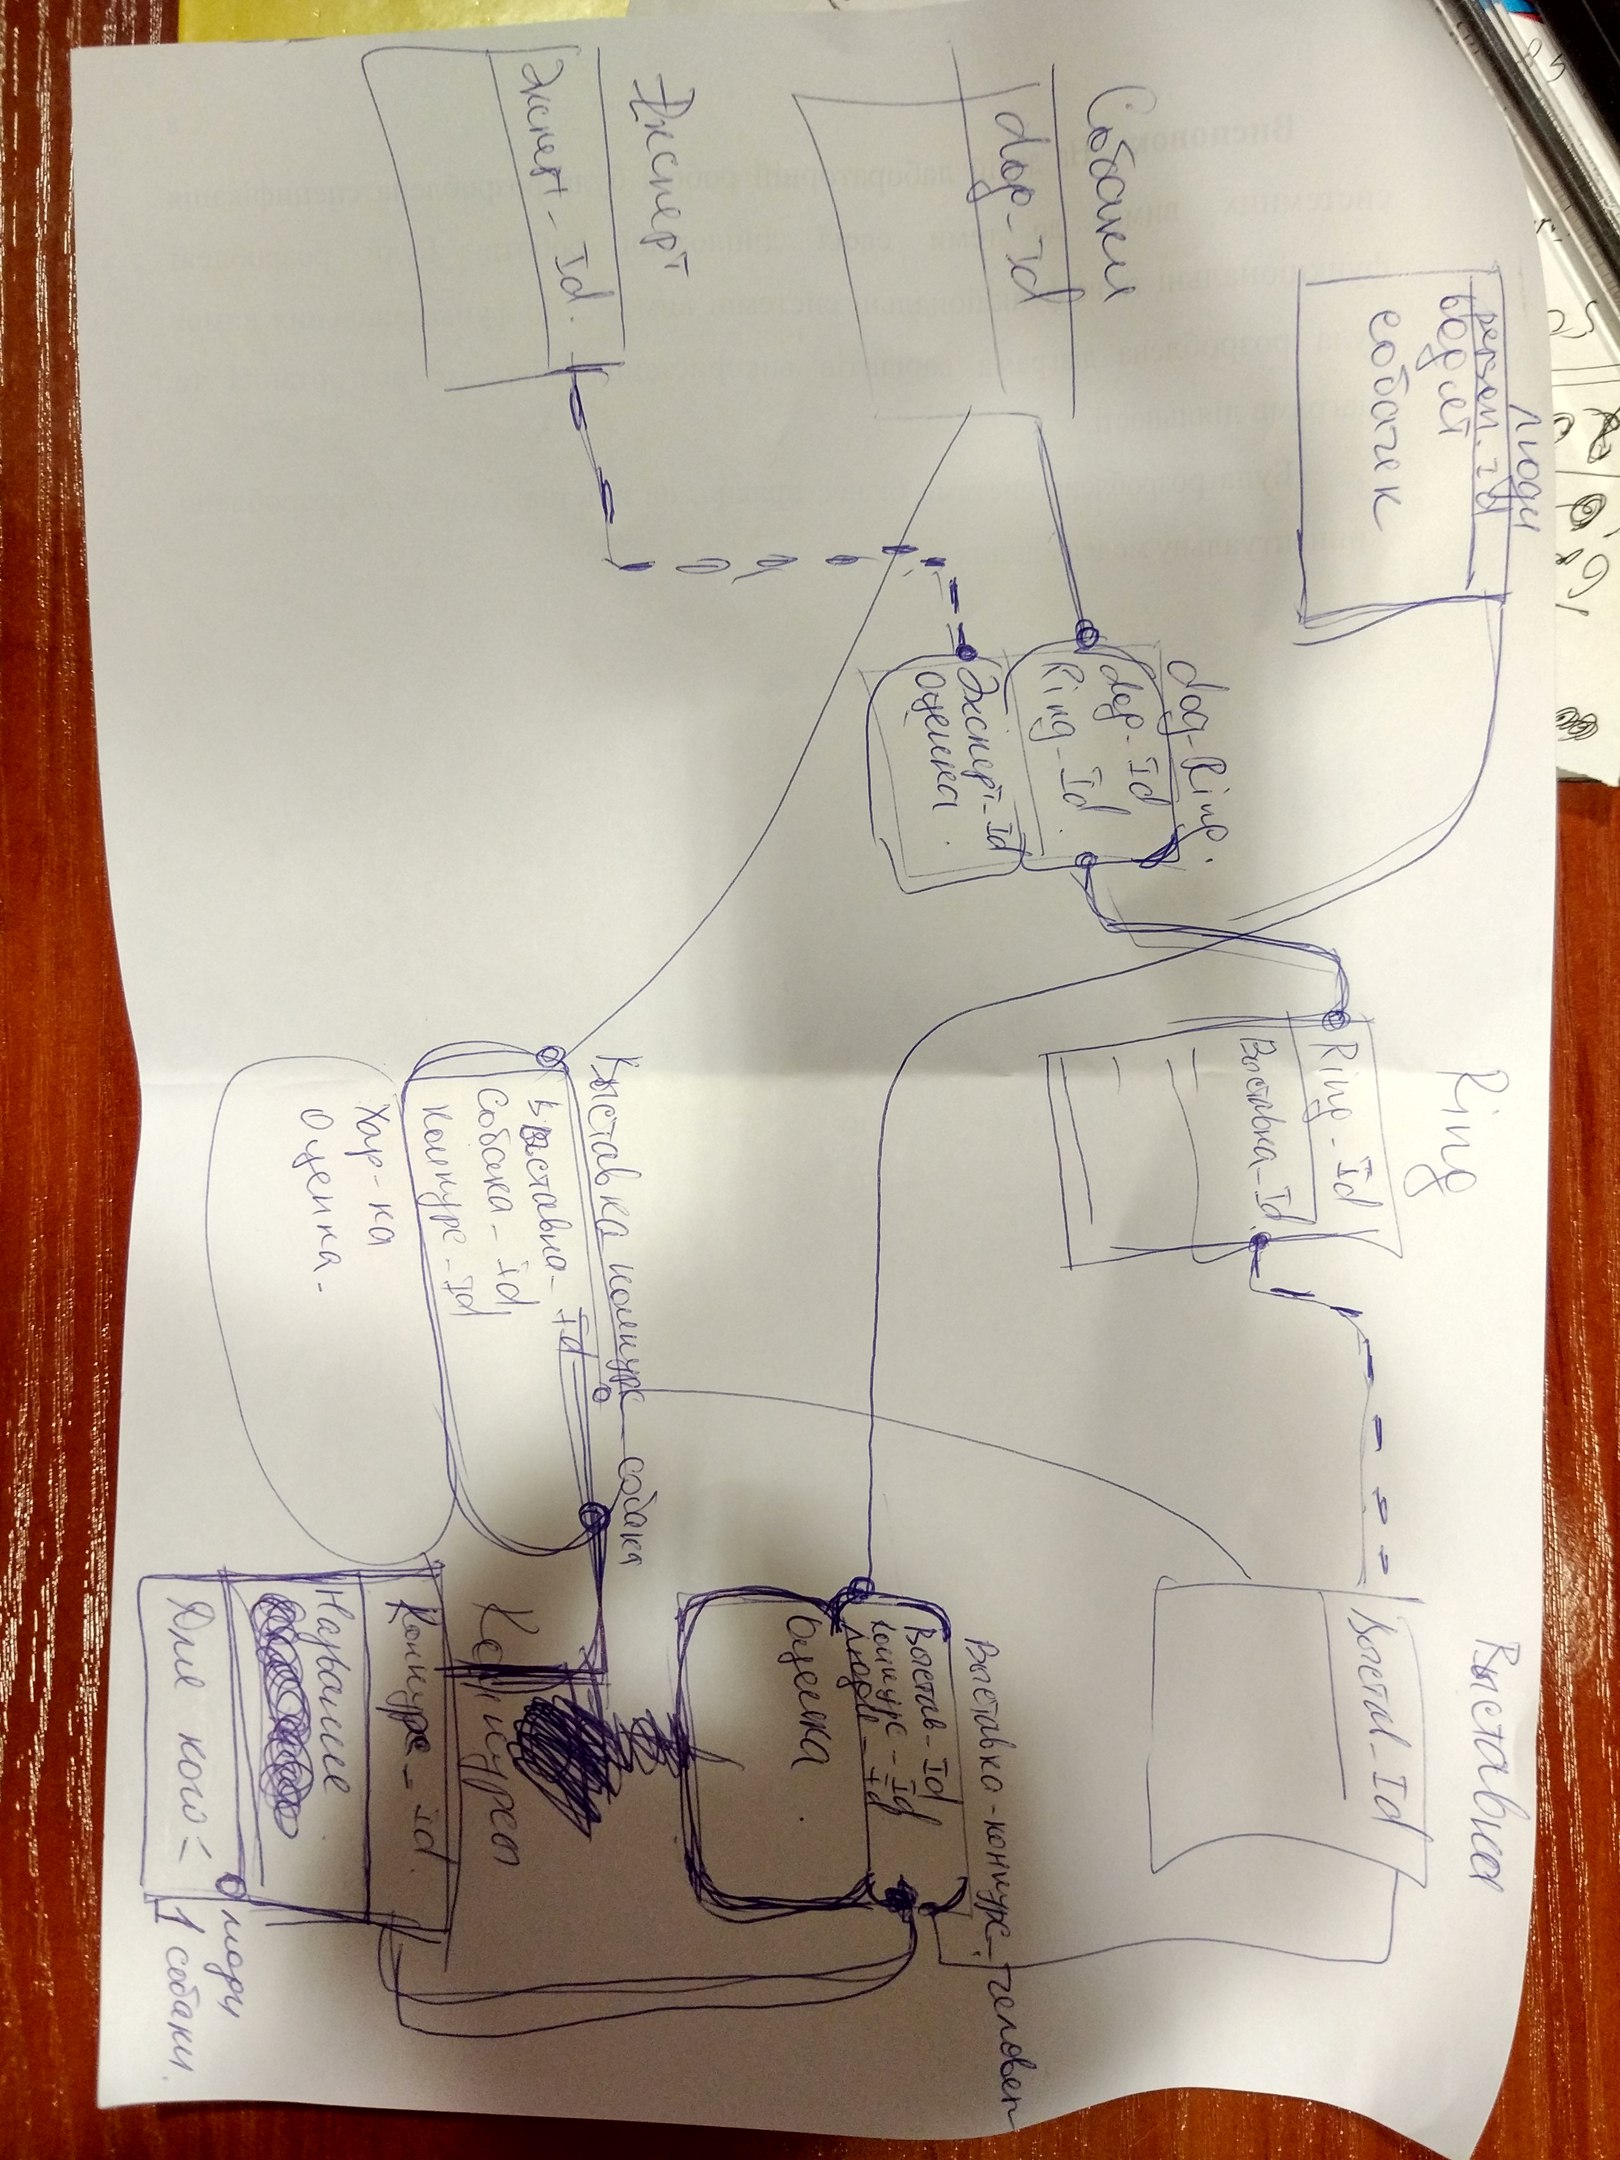 люди
person_Id
водят
собачек
Ring
Ring_Id
Выставка_Id
Выставка
Выстав_Id
dog_Ring
dog_Id
Ring_Id
Эксперт_Id
Оценка
Собаки
dog_Id
Выставка-конкурс_человек
Выстав_Id
Конкурс_Id
люди_Id
Оценка
Эксперт
Эксперт_Id
Выставка конкурс собака
Выставка_Id
Собака_Id
Конкурс_Id
Хар-ка
Оценка
Конкурсы
Конкурс_Id
Название
Для кого
люди
собаки